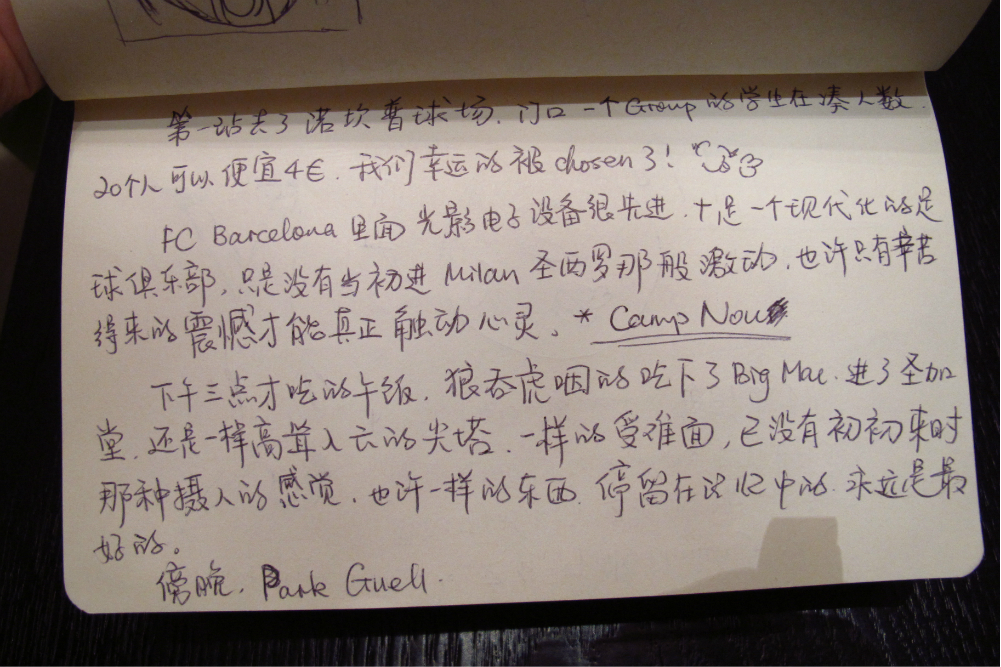 第一站去了诺坎普球场. 门口一个Group的学生在凑人数.
20个人可以便宜4€. 我们幸运的被chosen了!
FC Barcelona里面光影电子设备很先进. 十足一个现代化的足
球俱乐部, 只是没有当初进Milan圣西罗那般激动. 也许只有辛苦
得来的震憾才能真正触动心灵. * Camp Nou
下午三点才吃的午饭. 狼吞虎咽的吃下了Big Mac. 进了圣加
堂. 还是一样高耸入云的尖塔. 一样的受难面, 已没有初初来时
那种摄人的感觉. 也许一样的东西. 停留在记忆中的. 永远是最
好的。
傍晚. Park Guell.